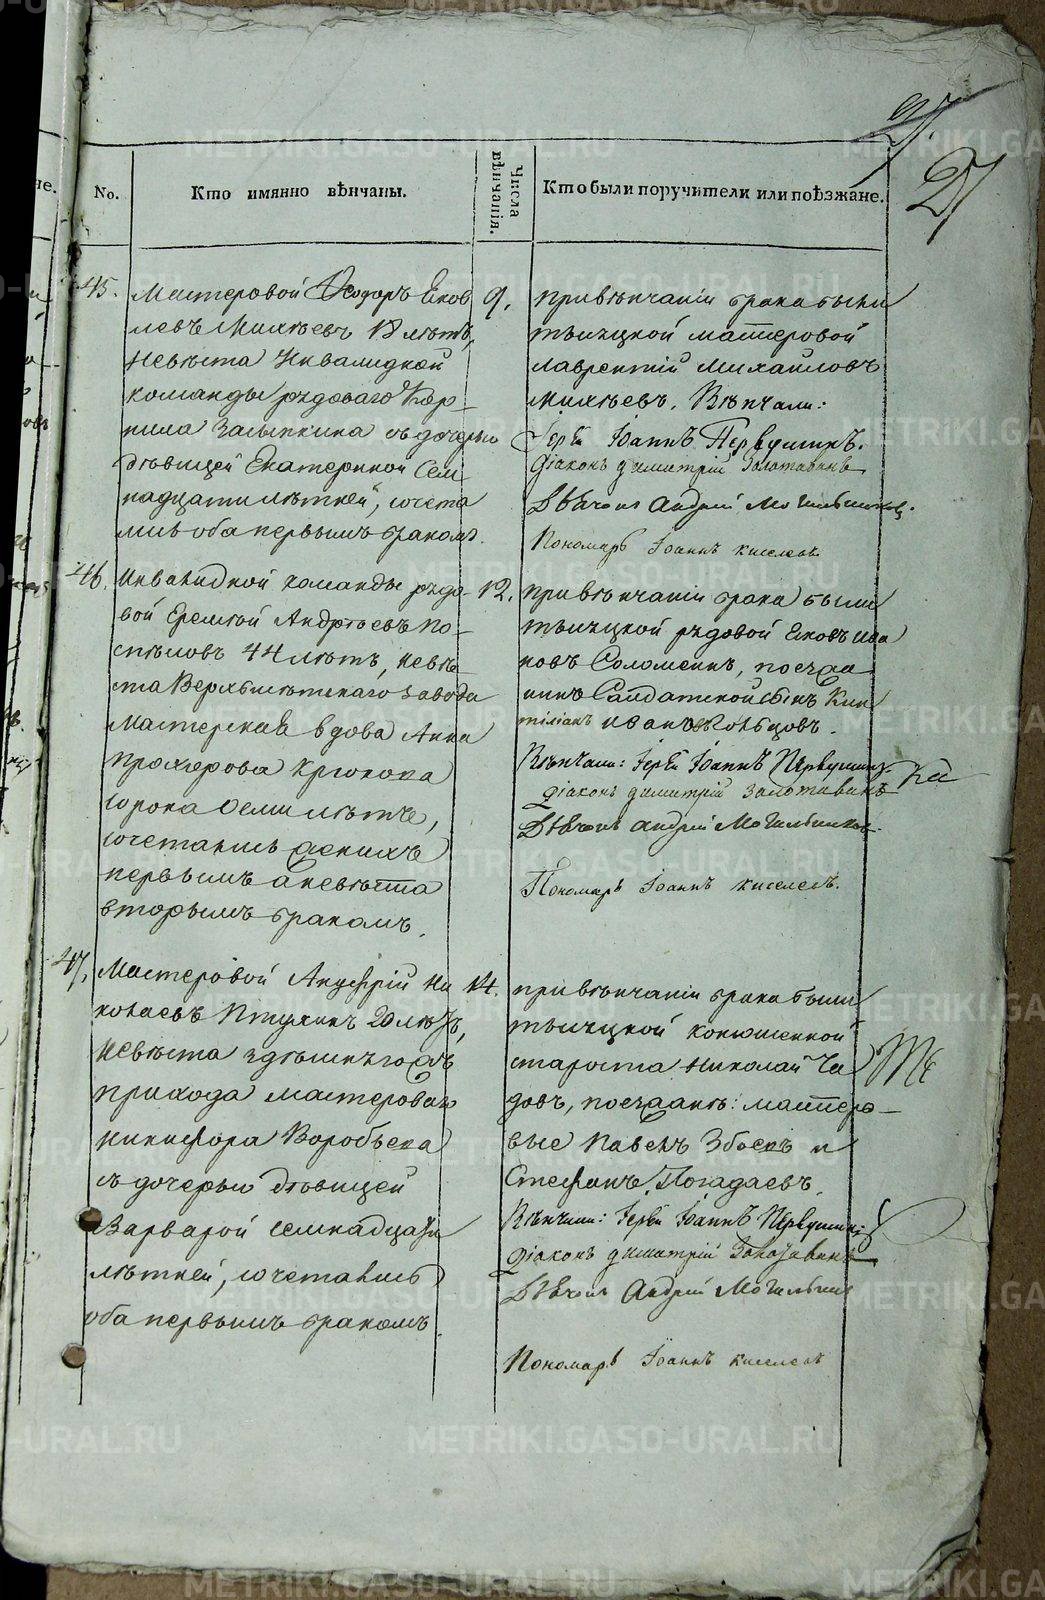 27.
27
No.
Кто имянно вѣнчаны.
Числа вѣнчанія.
Кто были поручители или поѣзжане.
45.
Мастеровой Ѳеодоръ Яков
левъ Михѣевъ 18 лѣтъ,
невѣста Инвалидной
команды рядоваго Кор-
нила Засыпкина съ дочерью
дѣвицей Екатериной Сем
надцати лѣтней, сочета
лись оба первымъ бракомъ.
9.
При вѣнчаніи брака были
тысяцкой мастеровой
Лаврентій Михайловъ
Михѣевъ. Вѣнчали:
Іерей Іоаннъ Первушинъ.
Діаконъ Димитрій Золотавинъ
Дьячокъ Андрей Могильников.
Пономарь Іоаннъ Киселевъ
46.
Инвалидной команды рядо-
вой Еремѣй Андрѣевъ По-
спѣловъ 44 лѣтъ, невѣ
ста Верхъисѣтскаго завода
мастерская вдова Анна
Прохорова Крюкова
сорока семи лѣтъ,
сочетались женихъ
первымъ а невѣста
вторымъ бракомъ.
12.
При вѣнчаніи брака были
тысяцкой рядовой Яковъ Ива
новъ Соломеинъ, поезжа
нинъ Салдатской сынъ Кин
тиліанъ Ивановъ Кольцовъ.
Вѣнчали: Іерей Іоаннъ Первушинъ.
Діаконъ Димитрій Золотавинъ
Дьячокъ Андрей Могильников.
Пономарь Іоаннъ Киселевъ.
47.
Мастеровой Андрей Ни
колаевъ Птухинъ 20 лѣтъ,
невѣста здѣшнѣго
прихода мастероваго
Никифора Воробьева
съ дочерью дѣвицей
Варварой семнадцати
лѣтней, сочетались
оба первымъ бракомъ.
14.
При вѣнчаніи брака были
тысяцкой конюшенной
староста Николай Ча
довъ, поезжанѣ: мастеро-
вые Павелъ Збоевъ и
Стефанъ Погадаевъ.
Вѣнчали: Іерей Іоаннъ Первушинъ
Діаконъ Димитрій Золотавинъ
Дьячокъ Андрей Могильник
Пономарь Іоаннъ Киселевъ
METRIKI.GASO-URAL.RU